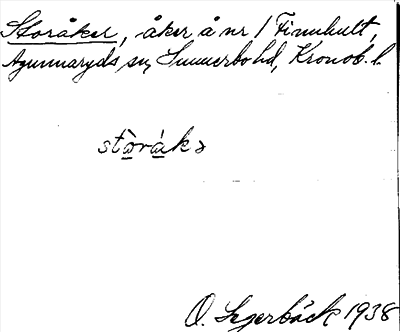 Storåker, åker å nr 1 Finnhult,
Agunnaryds sn, Sunnerbo hd, Kronob. l.
stòrákə
O. Segerbäck 1938